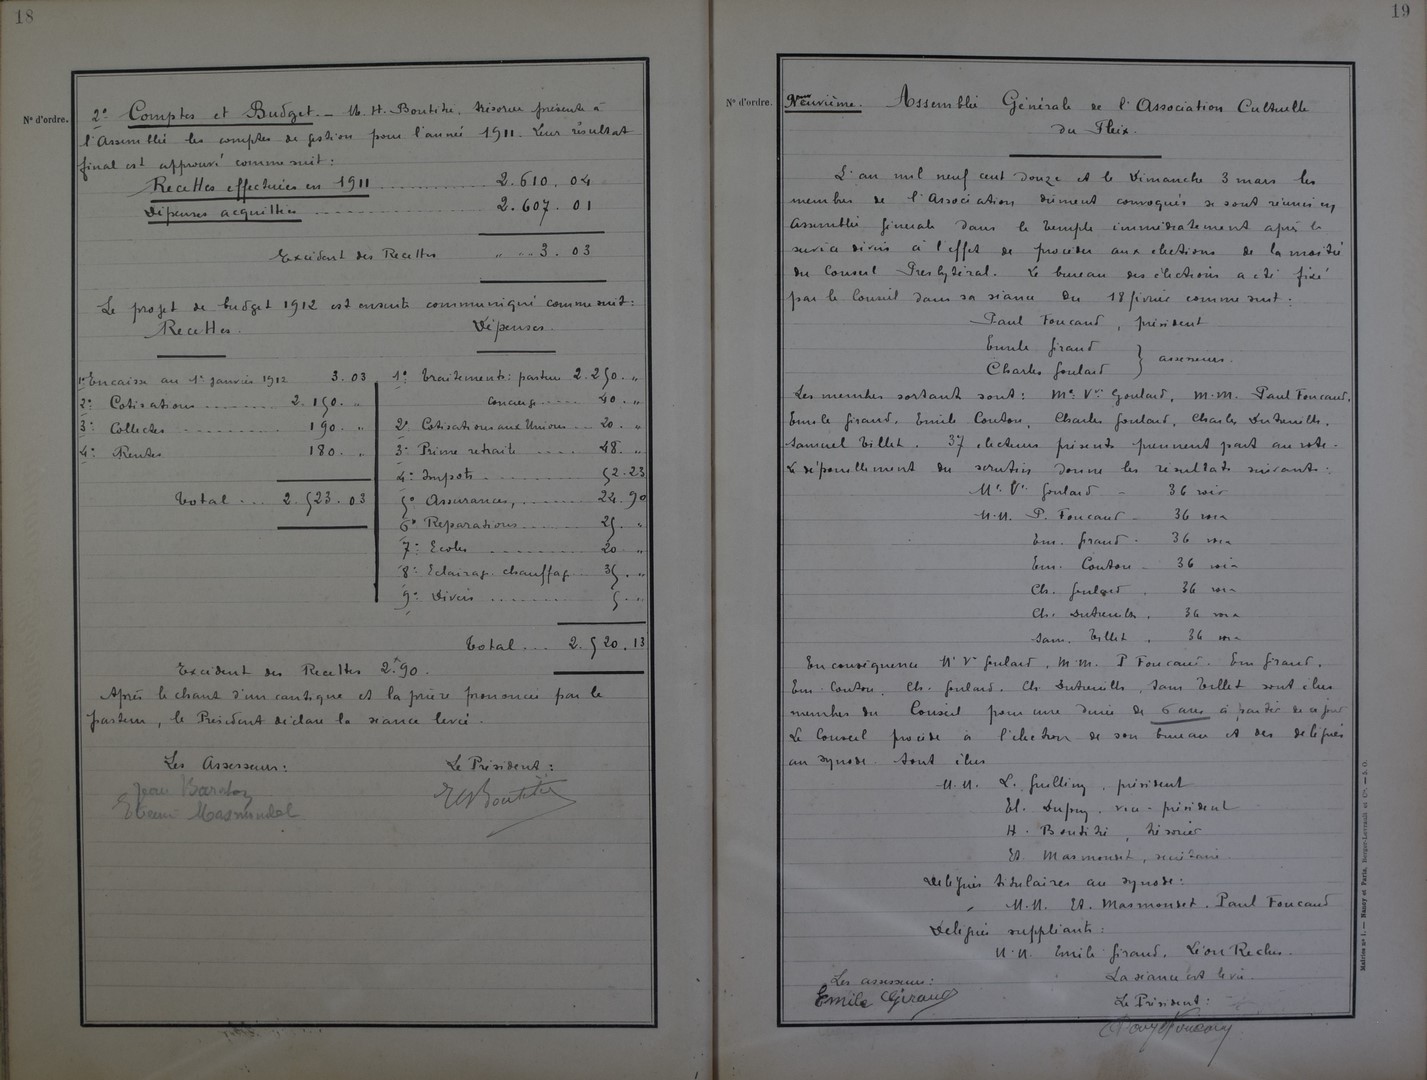 18
N° d'ordre.
2° Comptes et Budget. — M. H. Boutité, trésorier présente à
l'Assemblée les comptes de gestion pour l'année 1911. Leur résultat
final est approuvé comme suit :
Recettes effectuées en 1911 ........ 2.610. 04
Dépenses acquittées ........ 2.607. 01
Excédent des Recettes " .. 3. 03
Le projet de budget 1912 est ensuite communiqué comme suit :
Recettes.
1° Encaisse au 1er janvier 1912 3.03
2° Cotisations ........ 2.150. "
3° Collectes ........ 190. "
4° Rentes 180. "
Total ... 2.523.03
Dépenses
1° Traitements : pasteur 2.250. "
concierge ..... 40. "
2° Cotisations aux Unions ... 20. "
3° Prime retraite ..... 48. "
4° Impots ........ 52.23
5° Assurances, ........ 24.90
6° Reparations ........ 25. "
7° Ecoles ........ 20 "
8° Eclairage chauffage ... 35. "
9° Divers ........ 5. "
Total ... 2.520.13
Excédent des Recettes 2f.90.
Après le chant d'un cantique et la prière prononcée par le
pasteur, le Président déclare la séance levée.
Les Assesseurs :
Jean
Le Président :
19
N° d'ordre.
Neuvième. Assemblée Générale de l'Association Cultuelle
du Fleix.
L'an mil neuf cent douze et le Dimanche 3 mars les
membres de l'Association dûment convoqués se sont réunis en
Assemblée générale dans le temple immédiatement après le
service divin à l'effet de procéder aux élections de la moitié
du Conseil Presbytéral. Le bureau des élections a été fixé
par le Conseil dans sa séance du 18 février comme suit :
Paul Foucaud, président
Emile Giraud
Charles Goulard } assesseurs.
Les membres sortant sont : Me Vve Goulard, M.M. Paul Foucaud,
Emile Giraud, Emile Couton, Charles Goulard, Charles Dutreuilh,
Samuel Tillet. 37 électeurs présents prennent part au vote.
Le dépouillement du scrutin donne les résultats suivants :
Me Ve Goulard - 36 voix
M.M. P. Foucaud - 36 voix
Em. Giraud - 36 voix
Em. Couton - 36 voix
Ch. Goulard . 36 voix
Ch. Dutreuilh . 36 voix
Sam. Tillet . 36 voix
En conséquence Me Ve Goulard, M.M. P Foucaud. Em. Giraud.
Em. Couton, Ch. Goulard. Ch. Dutreuilh, Sam Tillet sont élus
membres du Conseil pour une durée de 6 ans à partir de ce jour
Le Conseil procède à l'élection de son bureau et des délégués
au synode. Sont élus
M.M. L. président
El. Dupuy, vice-président
H. Boutité, trésorier
Et. Marmonset, secrétaire.
Délégués titulaires au synode :
M.M. Et. Marmonset. Paul Foucaud
Délégués suppliants :
M.M. Emile Giraud. Léon Reclus.
La séance est levée.
Les assesseurs :
Emile Giraud
Le Président :
Matrice n° 1. — Nancy et Paris, Berger-Levrault et Cie. — J. O.